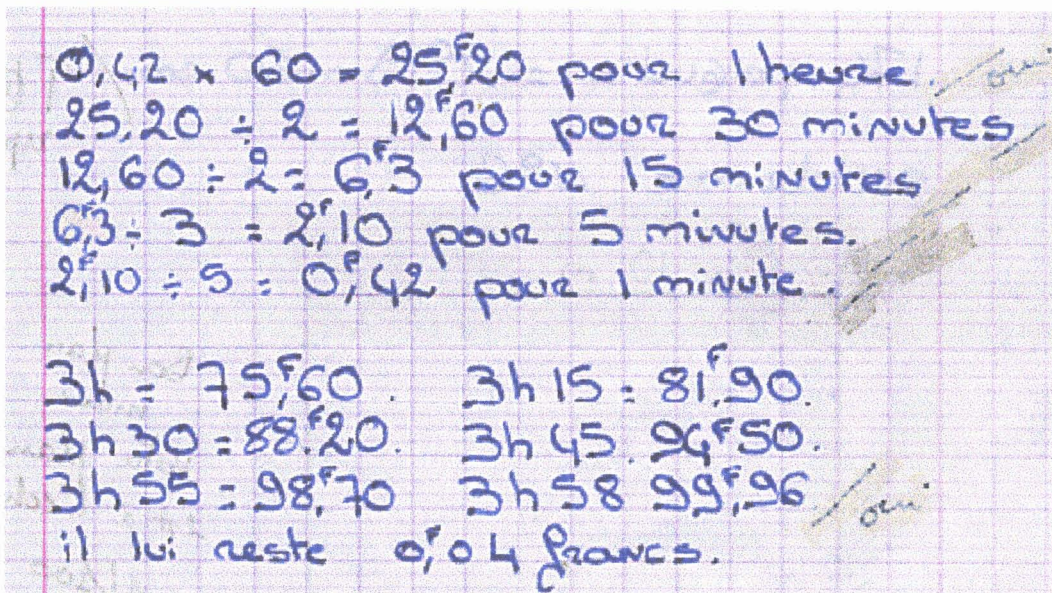 0,42 × 60 = 25F,20 pour 1 heure. oui
25,20 ÷ 2 = 12F,60 pour 30 minutes
12,60 ÷ 2 = 6F,3 pour 15 minutes
6F,3 ÷ 3 = 2F,10 pour 5 minutes.
2F,10 ÷ 5 = 0F,42 pour 1 minute.
3h = 75F,60. 3h 15 = 81F,90.
3h 30 = 88F,20. 3h 45. 94F50.
3h 55 = 98F,70 3h 58 99F,96 oui
il lui reste 0F,04 francs.